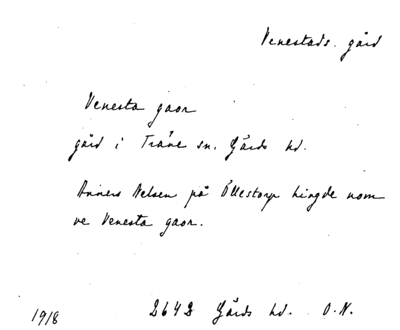 Venestads gård
Venesta gaor
gård i Träne sn. Gärds hd.
Anners Nelsen på Ullestorp hingde nom
ve Venesta gaor.
1918 2642 Gärds hd. O.N.